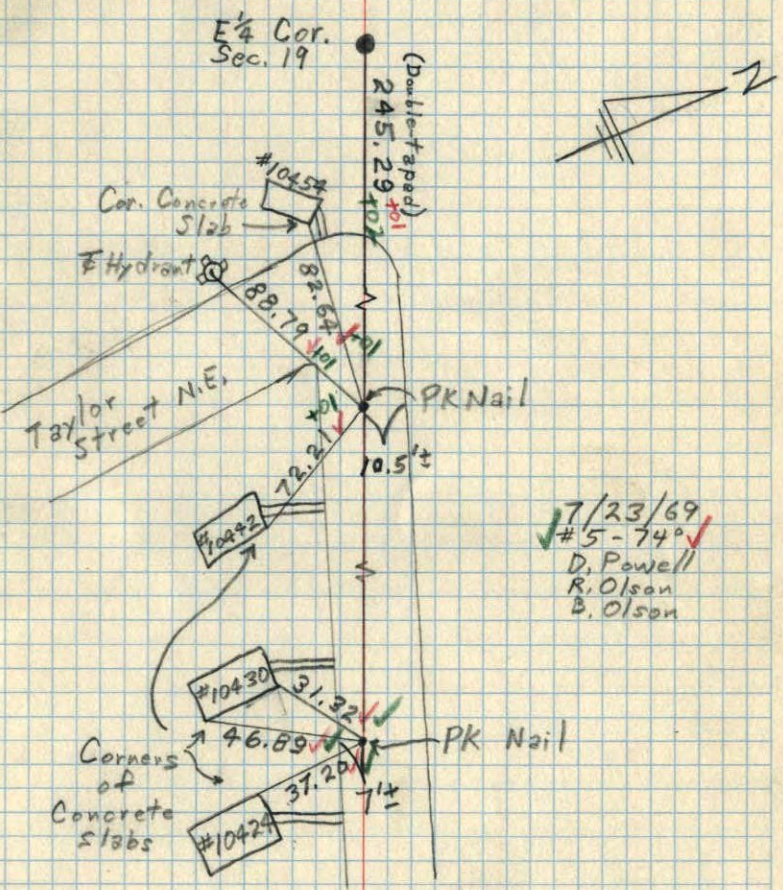 E¼ Cor.
Sec. 19
(Double taped)
245.29 +01
+02
N
#10454
Cor. Concrete
Slab
Hydrant
82.64 +01
88.79 +01
Taylor
Street N.E.
PK Nail
+01
72.21
10.5'±
#10442
7/23/69
#5 - 74°
D. Powell
R. Olson
B. Olson
#10430
31.32
46.89
PK Nail
37.20
7'±
Corners
of
Concrete
Slabs
#10424